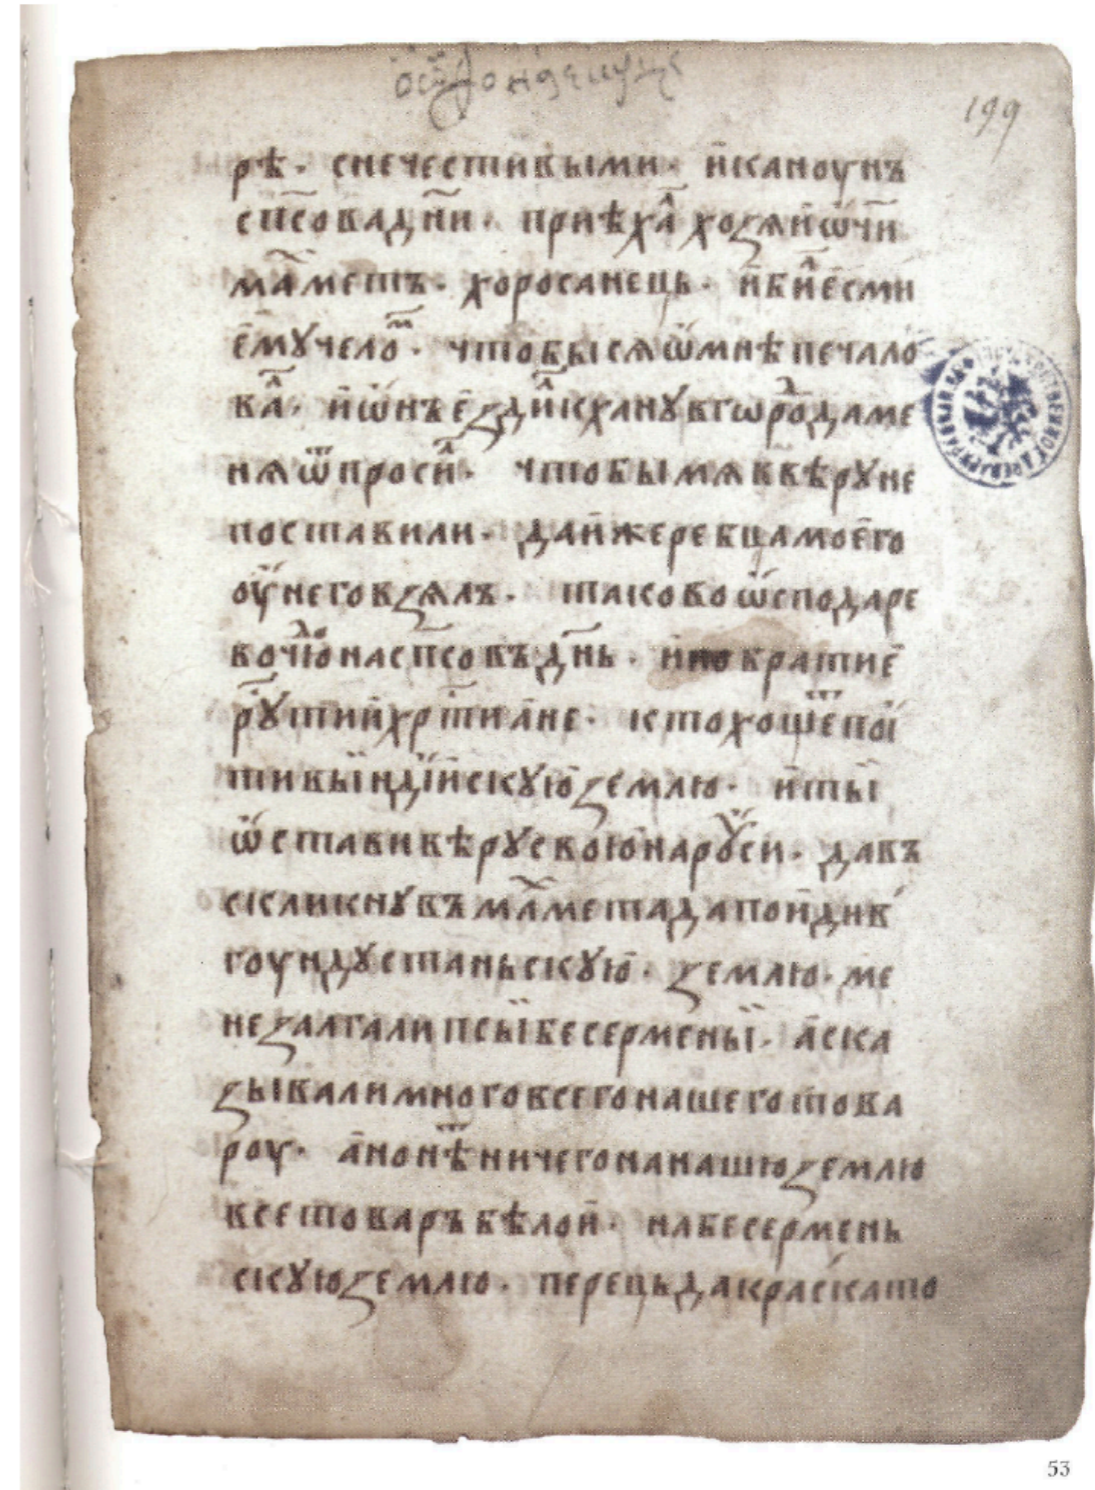 199
рѣ· снечестивыми· и҆кановнъ
сп҃совадн҃и· приѣхаⷧ҇ хоꙁѧи҆ѡ҆чи
маⷯ҇меть· хоросанець· и҆биⷧ҇е҆сми
е҆мꙋчелоⷨ· чтобысѧѡ҆мнѣпечало
ваⷧ҇· и҆ѡ҆нъе҆ꙁдиⷧ҇кханꙋвгѡроⷣдаме
нѧѿпросиⷧ҇· чтобымѧввѣрꙋне
поставили· даи҆жеребцамое҆го
ѹ҆неговꙁѧлъ· таковоѡ҆сподаре
вочюⷣ҇насп҃совъдн҃ь· и҆нобратие҆
рꙋⷭ҇тии҆хрⷭ҇тиа҆не· ктохощеⷮпои҆
тивъи҆ндѣи҆скꙋю҆ꙁемлю· и҆ты
ѡ҆ставивѣрꙋсвою҆нарꙋси· давъ
скликнꙋвъмаⷯметадапоидив
гоѹндꙋстаньскꙋю҆· ꙁемлю· ме
неꙁалгалипсыбесермены· а҆ска
ꙁывалимноговсегонашеготова
роѹ· а҆нонѣⷮничегонанашюꙁемлю
всетоваръбѣлои҆· набесермень
скꙋюꙁемлю· перецьдакраскато
53